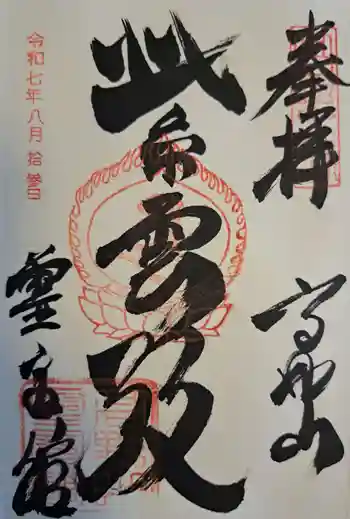 奉拝
高野山
紫雲殿
霊宝館
令和七年八月拾参日